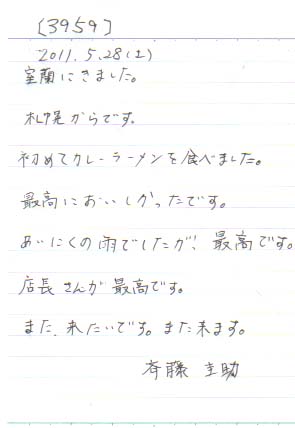 [3959]
2011.5.28(土)
室蘭にきました。
札幌からです。
初めてカレーラーメンを食べました。
最高においしかったです。
あいにくの雨でしたが、最高です。
店長さんが最高です。
また、来たいです。また来ます。
斉藤 圭助